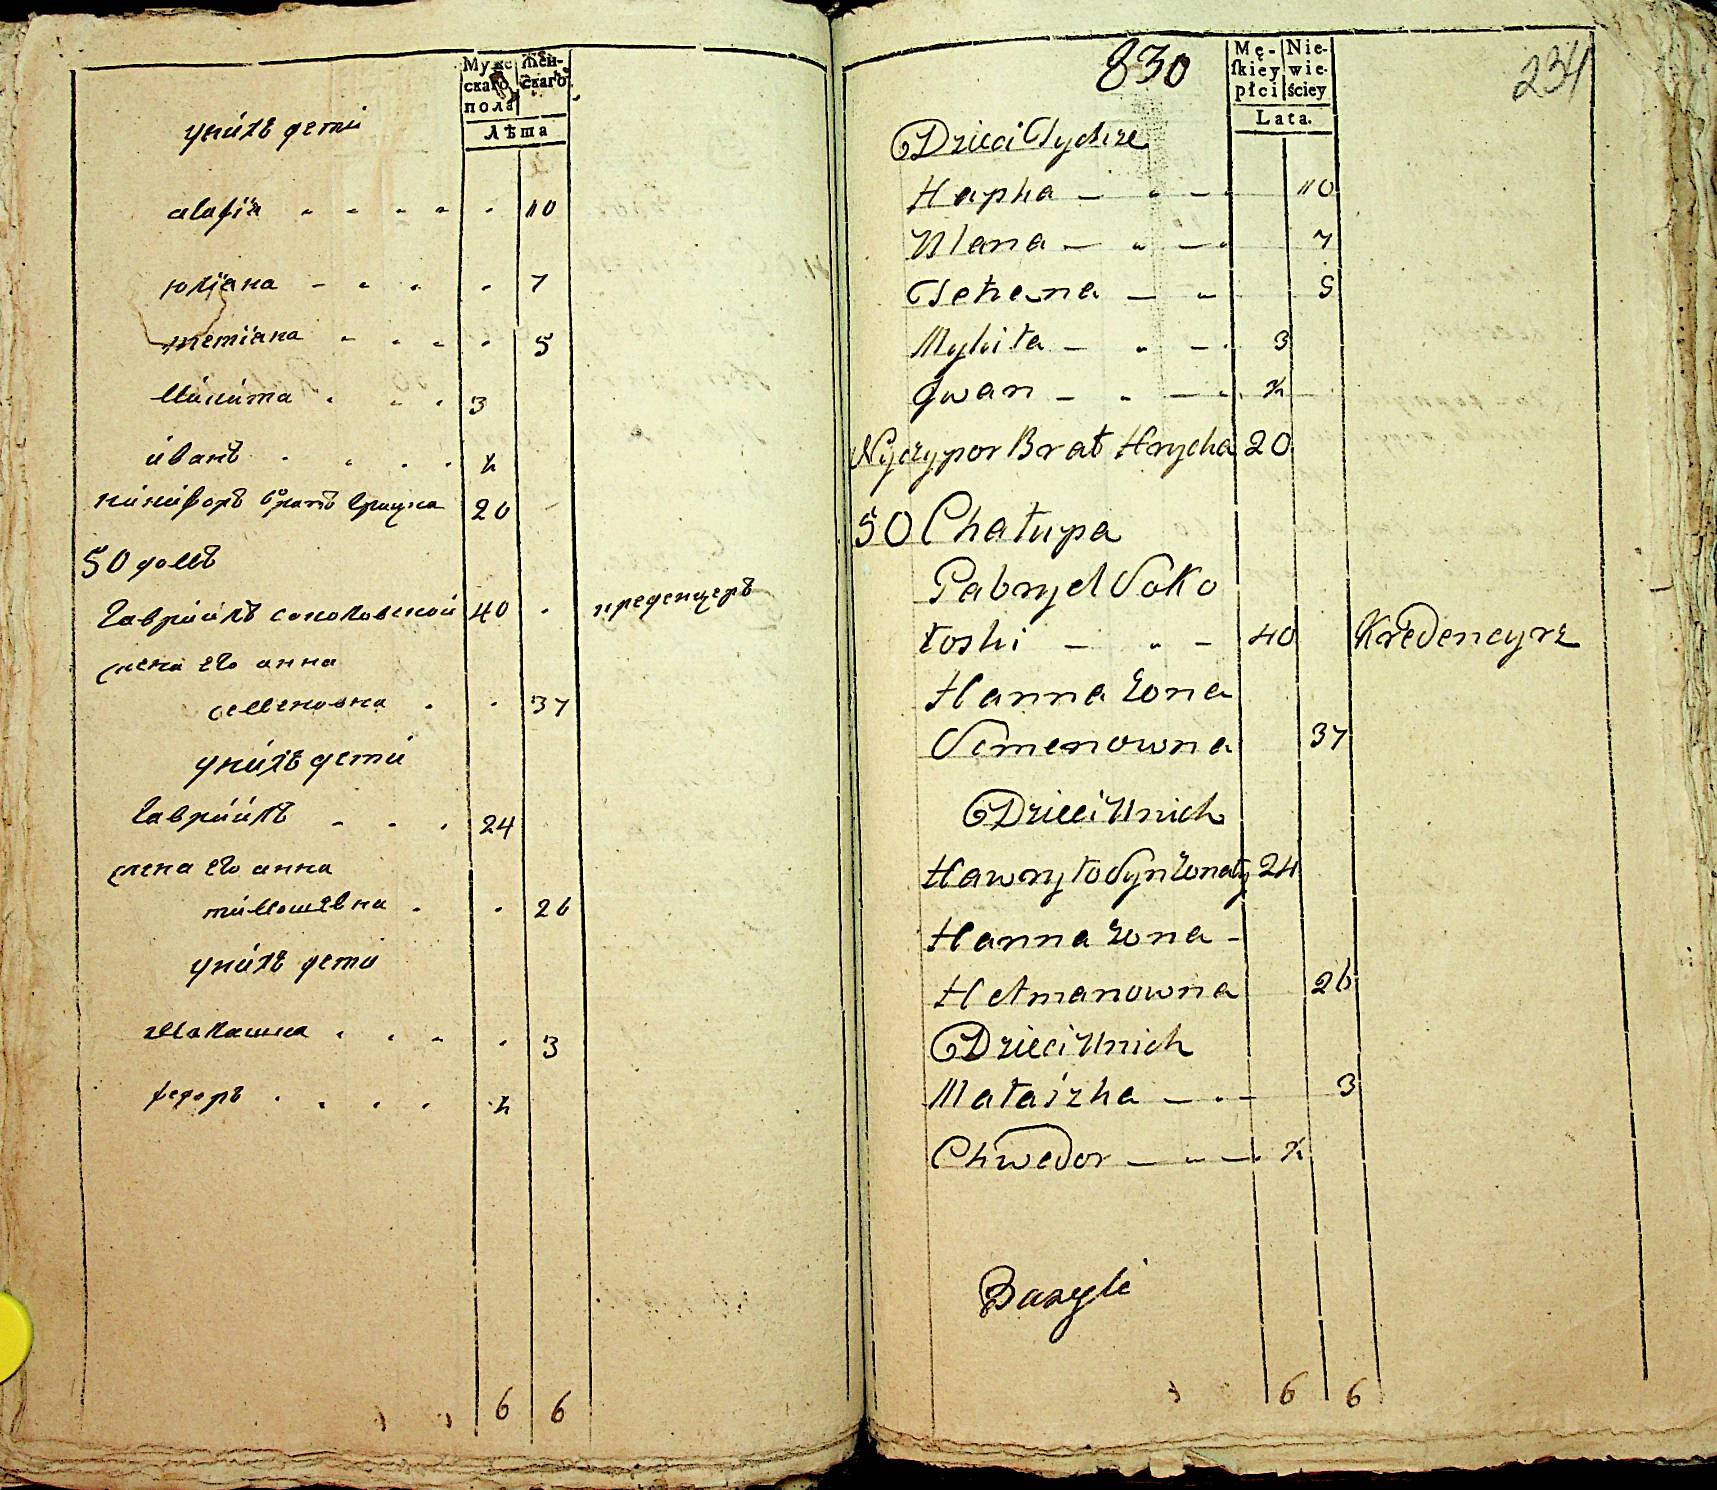 Мужс-
скаго
пола
Жен-
скаго
Лѣта
унихъ дети
агафiя 10
юлiана 7
тетiана 5
Микита 3
iванъ ½
никифоръ братъ Грицка 20
50 домъ
Гаврiилъ соколовской 40 кредецеръ
жена его анна
семеновна 37
унихъ дети
Гаврiилъ 24
жена его анна
тимошевна 26
унихъ дети
малашка 3
федоръ ½
6 6
830
234
Mę-
skiey
płci
Nie-
wie-
ściey
Lata.
Dzieci Tychże
Hapka — " — 10
Ulana — " — 7
Tetiana — " 5
Mykita — " — 3
Jwan — " — ½
Nyczypor Brat Hrycka 20
50 Chałupa
Gabryel Soko
łoski — " — 40 Kredencyrz
Hanna żona
Semenowna 37
Dzieci Unich
Hawryło Syn żonaty 24
Hanna żona -
Hetmanowna 26
Dzieci Unich
Małaszka — . — 3
Chwedor — " — ½
Bazyli
6 6